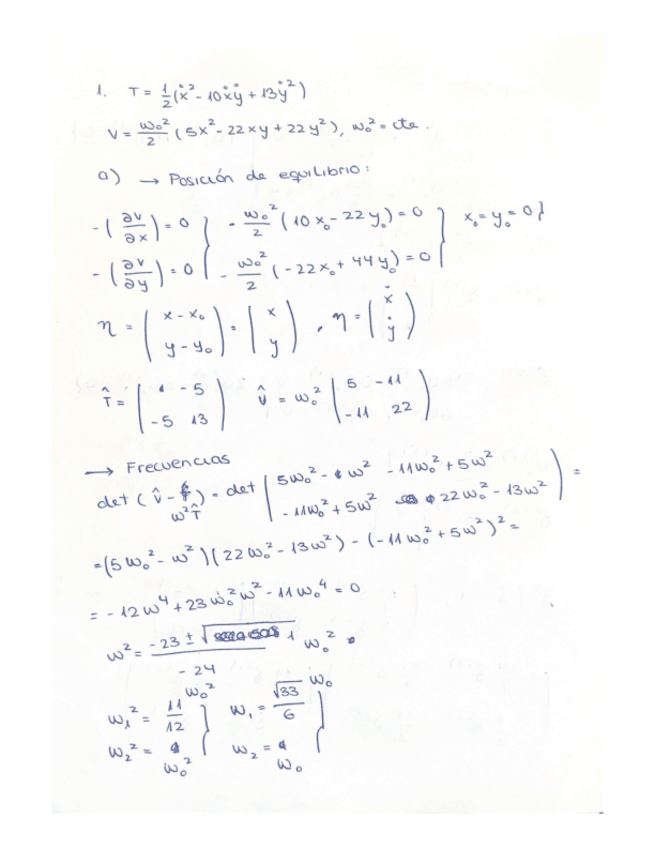 1. T = 1/2 (ẋ² - 10ẋẏ + 13ẏ²)
V = ω₀²/2 (5x² - 22xy + 22y²), ω₀² = cte.
a) → Posición de equilibrio:
-(∂V/∂x) = 0 } - ω₀²/2 (10x₀ - 22y₀) = 0 } x₀ = y₀ = 0}
-(∂V/∂y) = 0 } - ω₀²/2 (-22x₀ + 44y₀) = 0
η = (x - x₀ / y - y₀) = (x / y), η̇ = (ẋ / ẏ)
T̂ = (1 -5 / -5 13) V̂ = ω₀² (5 -11 / -11 22)
→ Frecuencias
det (V̂ - ω²T̂) = det (5ω₀² - ω² -11ω₀² + 5ω² / -11ω₀² + 5ω² 22ω₀² - 13ω²) =
= (5ω₀² - ω²)(22ω₀² - 13ω²) - (-11ω₀² + 5ω²)² =
= -12ω⁴ + 23ω₀²ω² - 11ω₀⁴ = 0
ω² = (-23 ± √1)/-24 ω₀²
ω₁² = 11/12 ω₀² } ω₁ = √33/6 ω₀ }
ω₂² = ω₀² } ω₂ = ω₀ }